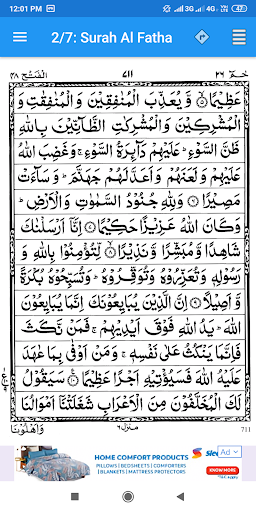 12:01 PM 3G 4G 47
2/7: Surah Al Fatha
الفتح ٤٨ ٧١١ حٰمٓ ٢٦
عَظِيْمًا ۙ﴿۵﴾ وَّيُعَذِّبَ الْمُنٰفِقِيْنَ وَالْمُنٰفِقٰتِ وَ
الْمُشْرِكِيْنَ وَالْمُشْرِكٰتِ الظَّآنِّيْنَ بِاللّٰهِ
ظَنَّ السَّوْءِ ؕ عَلَيْهِمْ دَآئِرَةُ السَّوْءِ ۚ وَغَضِبَ اللّٰهُ
عَلَيْهِمْ وَلَعَنَهُمْ وَاَعَدَّ لَهُمْ جَهَنَّمَ ؕ وَسَآءَتْ
مَصِيْرًا ﴿۶﴾ وَلِلّٰهِ جُنُوْدُ السَّمٰوٰتِ وَالْاَرْضِ ؕ
وَكَانَ اللّٰهُ عَزِيْزًا حَكِيْمًا ﴿۷﴾ اِنَّآ اَرْسَلْنٰكَ
شَاهِدًا وَّمُبَشِّرًا وَّنَذِيْرًا ۙ﴿۸﴾ لِّتُؤْمِنُوْا بِاللّٰهِ وَ
رَسُوْلِهٖ وَتُعَزِّرُوْهُ وَتُوَقِّرُوْهُ ؕ وَتُسَبِّحُوْهُ بُكْرَةً
وَّاَصِيْلًا ﴿۹﴾ اِنَّ الَّذِيْنَ يُبَايِعُوْنَكَ اِنَّمَا يُبَايِعُوْنَ
اللّٰهَ ؕ يَدُ اللّٰهِ فَوْقَ اَيْدِيْهِمْ ۚ فَمَنْ نَّكَثَ
فَاِنَّمَا يَنْكُثُ عَلٰى نَفْسِهٖ ۚ وَمَنْ اَوْفٰى بِمَا عٰهَدَ
عَلَيْهُ اللّٰهَ فَسَيُؤْتِيْهِ اَجْرًا عَظِيْمًا ﴿۱۰﴾ سَيَقُوْلُ
لَكَ الْمُخَلَّفُوْنَ مِنَ الْاَعْرَابِ شَغَلَتْنَآ اَمْوَالُنَا
وَاَهْلُوْنَا منزل ٦ 711
HOME COMFORT PRODUCTS
PILLOWS | BEDSHEETS | COMFORTERS
| BLANKETS | MATTRESS PROTECTORS
Ad
KNOW MORE